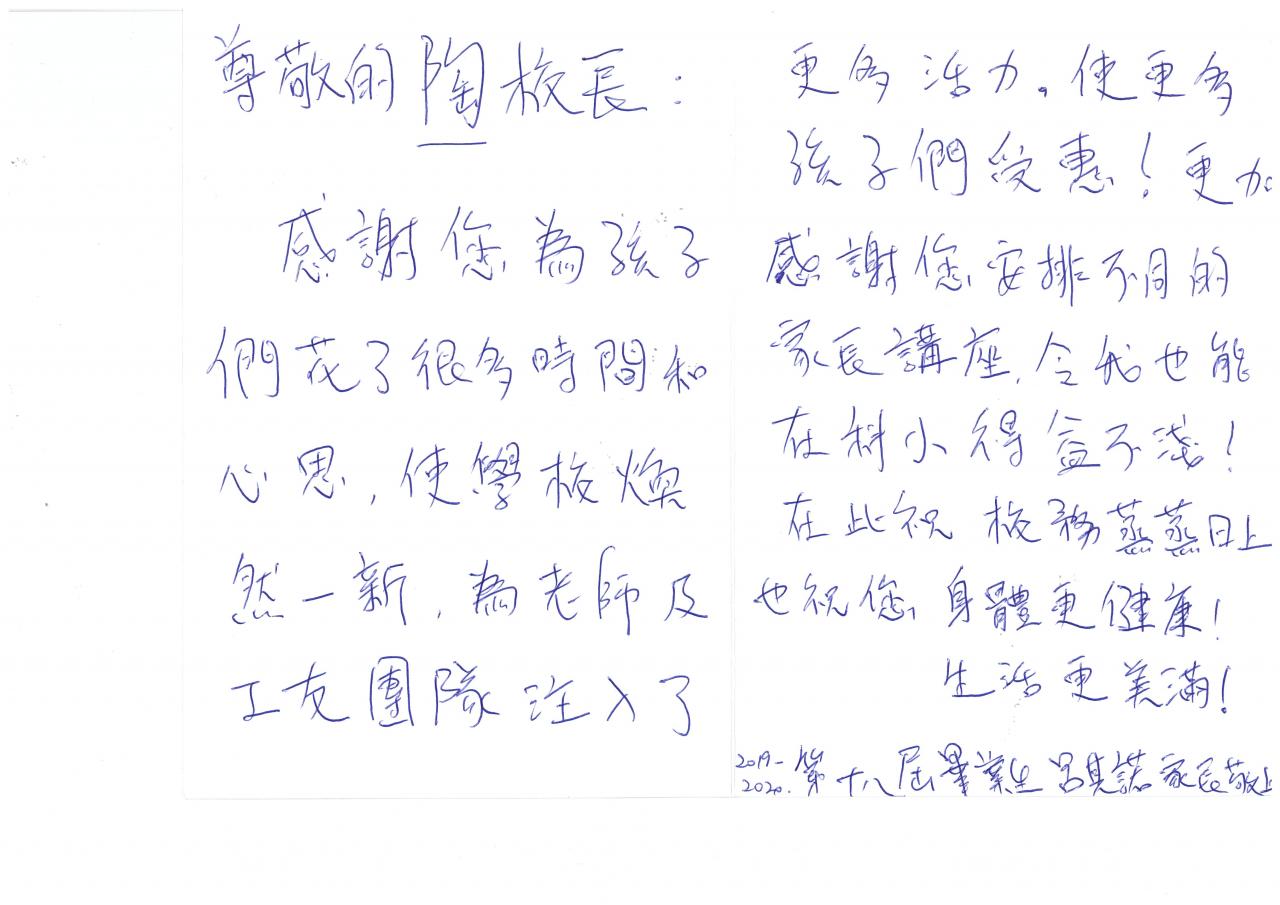 尊敬的陶校長：
感謝您為孩子
們花了很多時間和
心思，使學校煥
然一新，為老師及
工友團隊注入了
更多活力。使更多
孩子們受惠！更加
感謝您安排不同的
家長講座，令我也能
在科小得益不淺！
在此祝校務蒸蒸日上
也祝您身體更健康！
生活更美滿！
2019-
2020.第十八屆畢業生呂其諾家長敬上